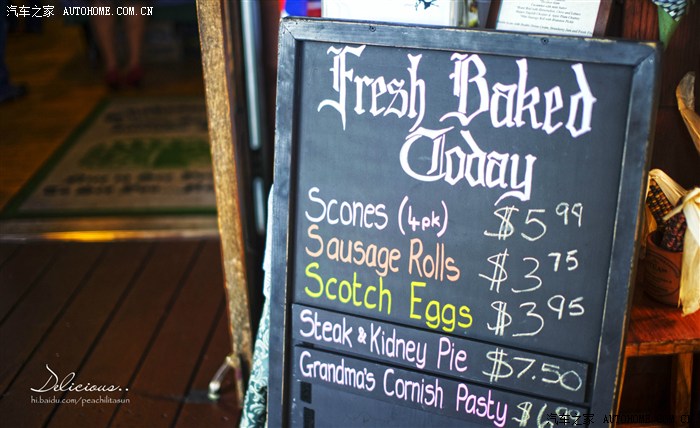 汽车之家 AUTOHOME.COM.CN
Fresh Baked
Today
Scones (4pk) $5.99
Sausage Rolls $3.75
Scotch Eggs $3.95
Steak & Kidney Pie $7.50
Grandma's Cornish Pasty
Delicious..
hi.baidu.com/peachilitasun
汽车之家 AUTOHOME.COM.CN